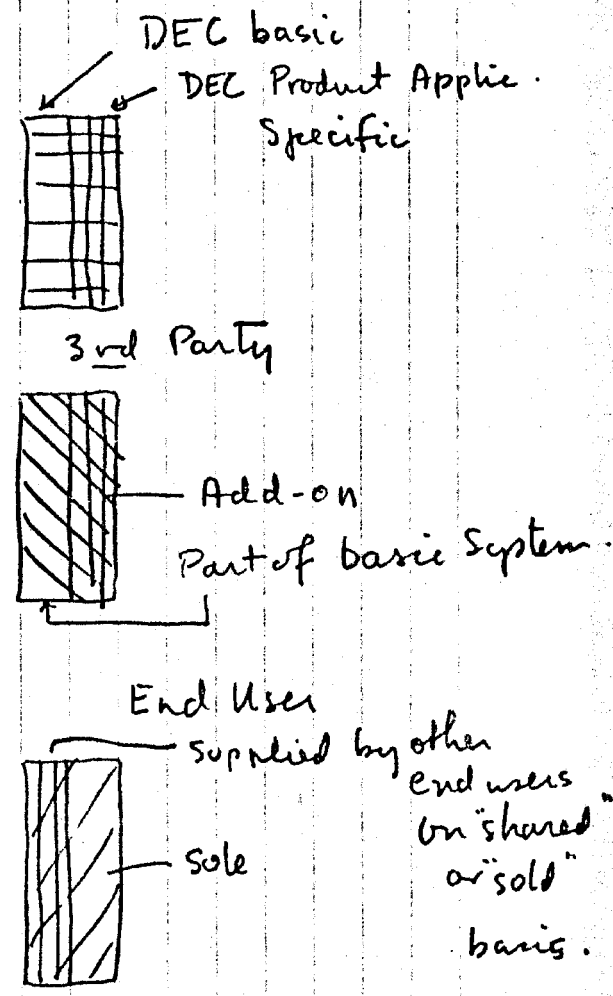 DEC basic
DEC Product Applic.
Specific
3rd Party
Add-on
Part of basic System.
End User
Supplied by other
end users
on "shared"
or "sold"
basis.
Sole